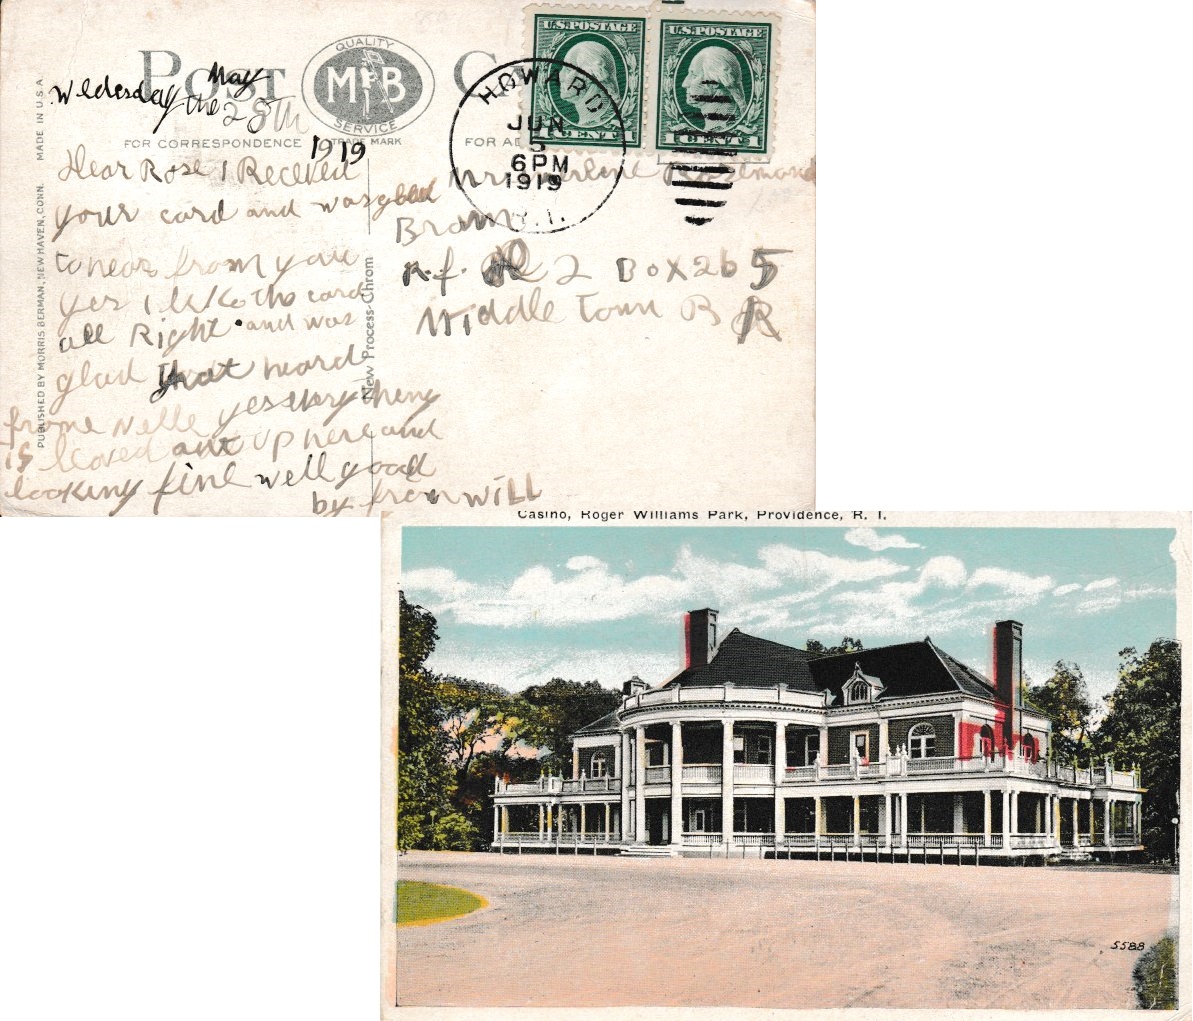 POST
QUALITY
MFB
SERVICE
TRADE MARK
FOR CORRESPONDENCE
MADE IN U.S.A.
PUBLISHED BY MORRIS BERMAN, NEW HAVEN, CONN.
New Process-Chrom
U.S. POSTAGE
1 CENT 1
U.S. POSTAGE
1 CENTS 1
HOWARD
JUN
5
6 PM
1919
R.I.
Wedesday the May
28Th
1919
Dear Rose I Received
your card and was glad
to hear from you
yes I like the card
all Right and was
glad that heard
frome Nelle yes every theng
is leaved aut up here and
looking fine well good
by from WiLL
Rosemond
Brown
R.f. D 2 Box 26 5
Middle Town R
Casino, Roger Williams Park, Providence, R. I.
5588